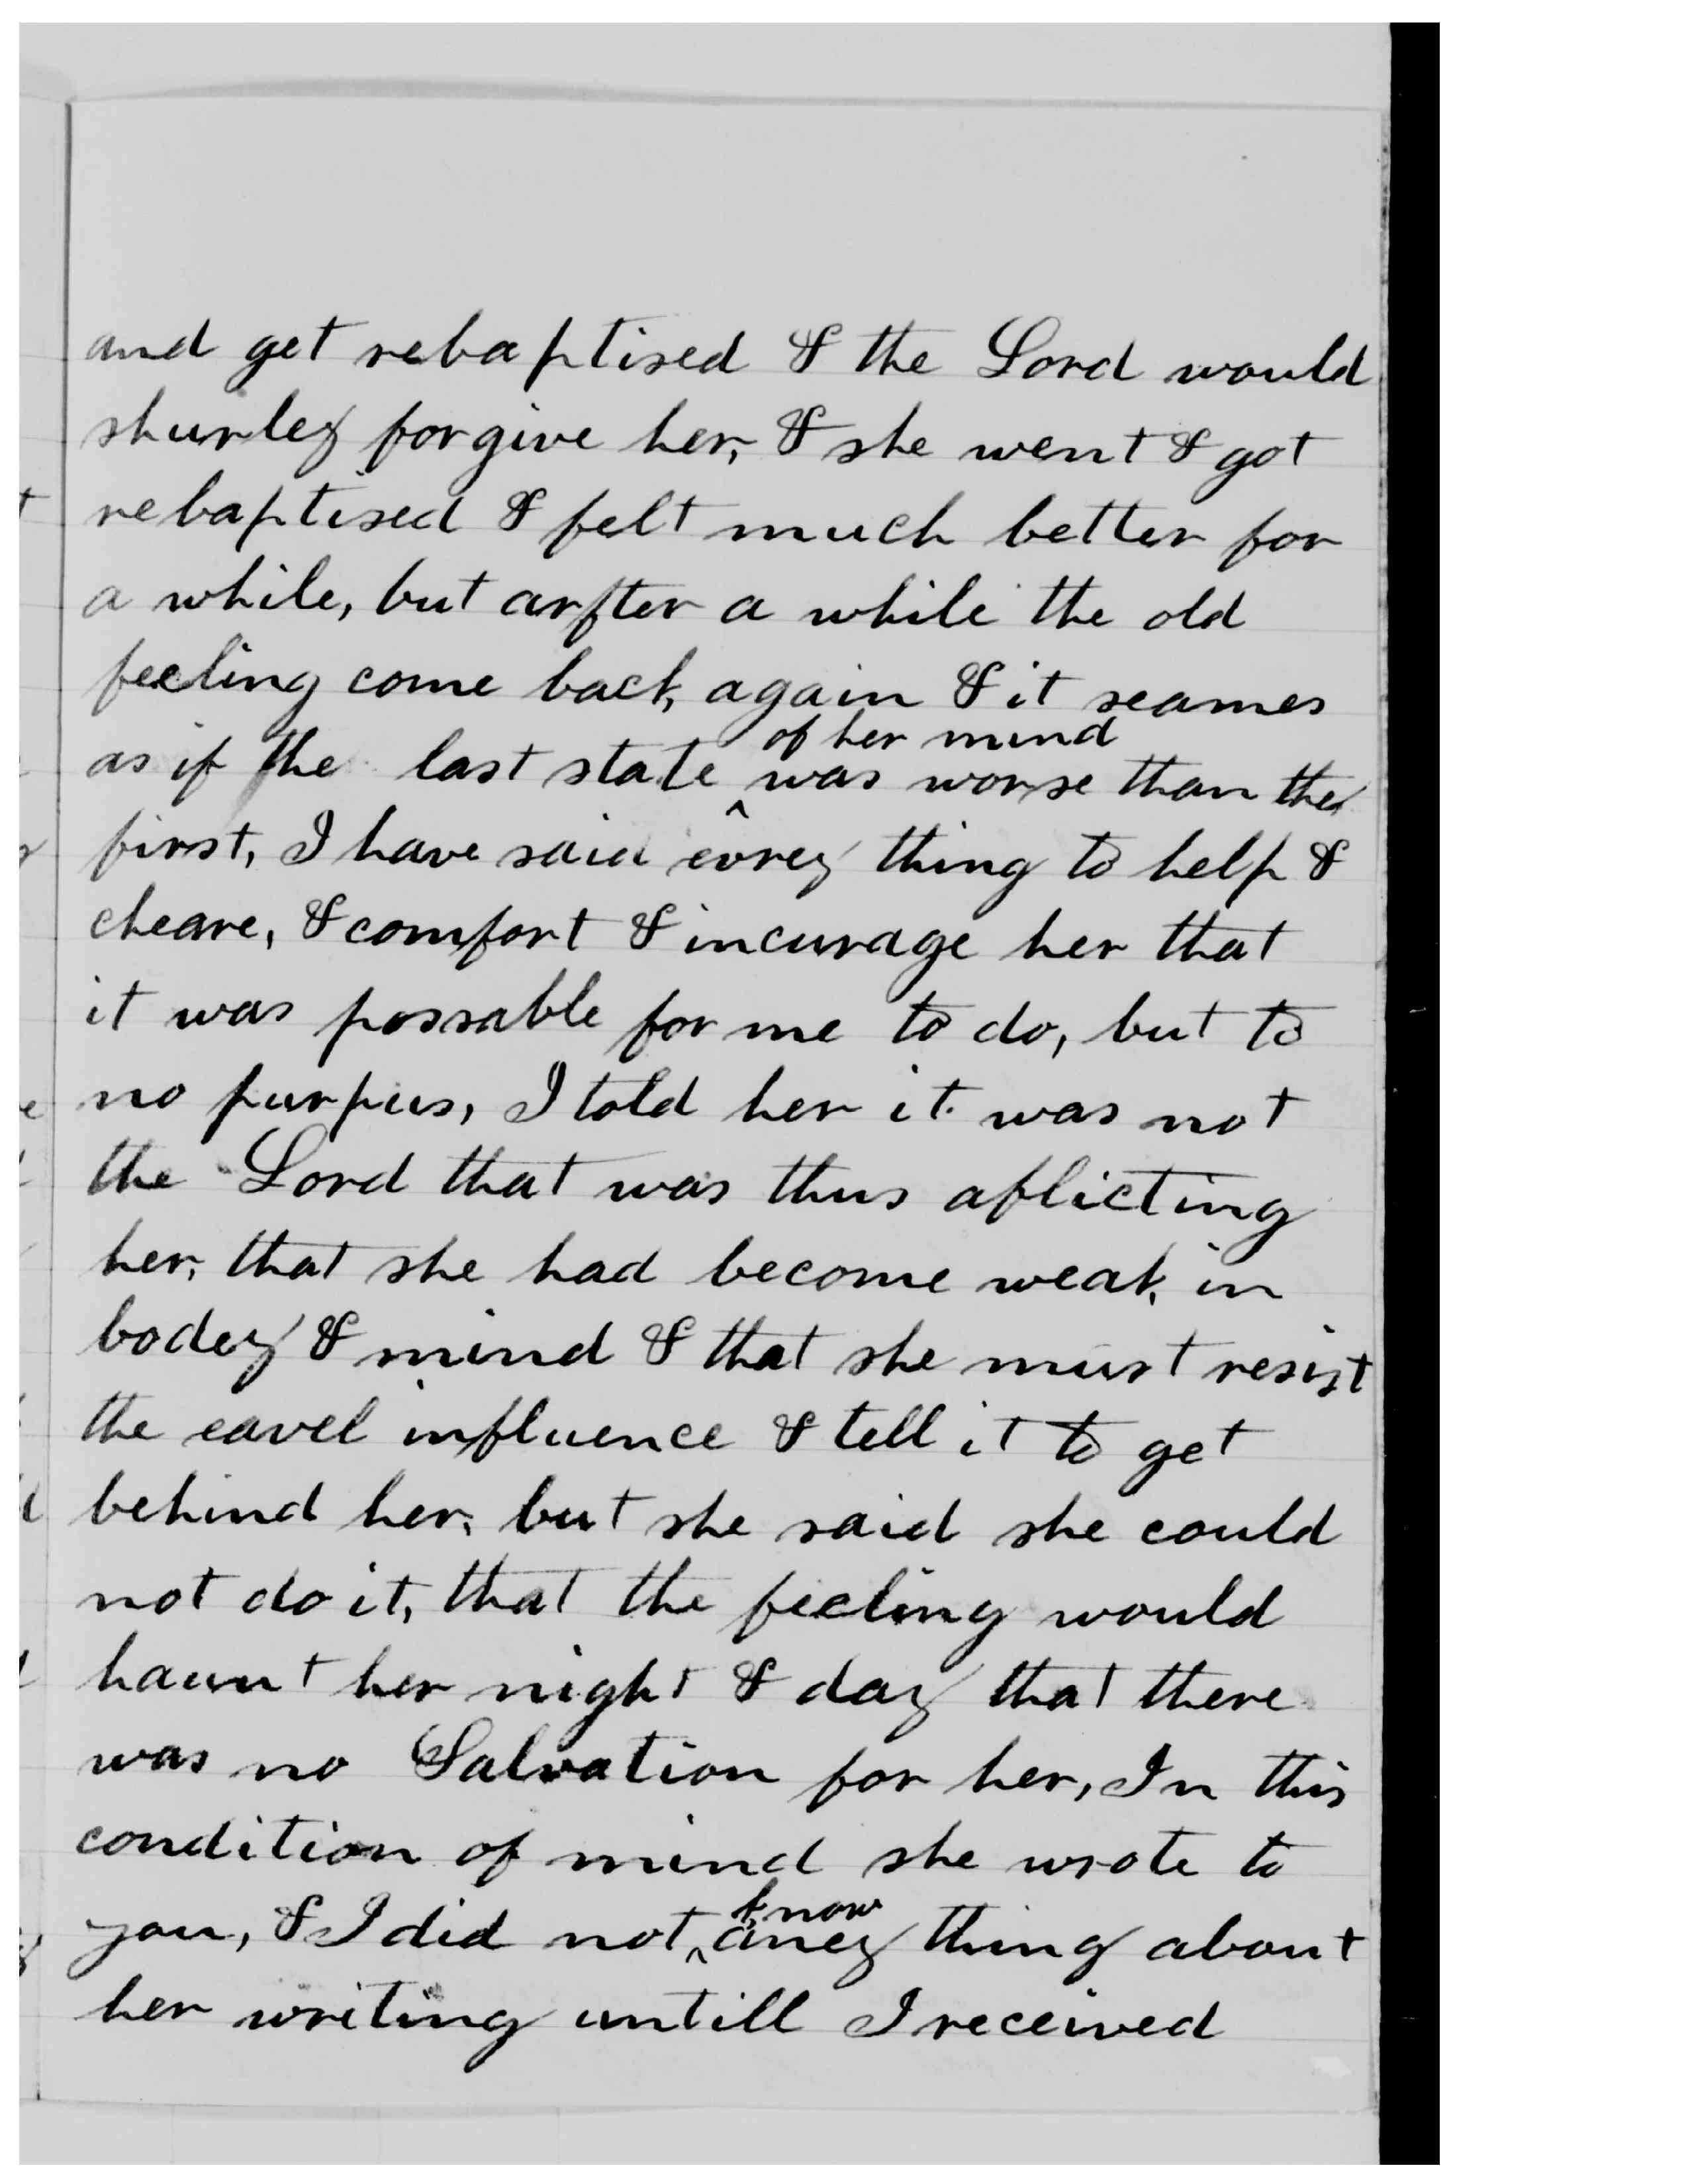 and get rebaptised & the Lord would
shurley forgive her, & she went & got
rebaptised & felt much better for
a while, but arfter a while the old
feeling come back, again & it seames
of her mind
as if the last state ^ was worse than the
first, I have said evrey thing to help &
cheare, & comfort & incurage her that
it was possable for me to do, but to
no purpus, I told her it was not
the Lord that was thus aflicting
her, that she had become weak, in
bodey & mind & that she must resist
the eavel influence & tell it to get
behind her, but she said she could
not do it, that the feeling would
haunt her night & day that there
was no Salvation for her, In this
condition of mind she wrote to
know
you, & I did not ^ aney thing about
her writing untill I received